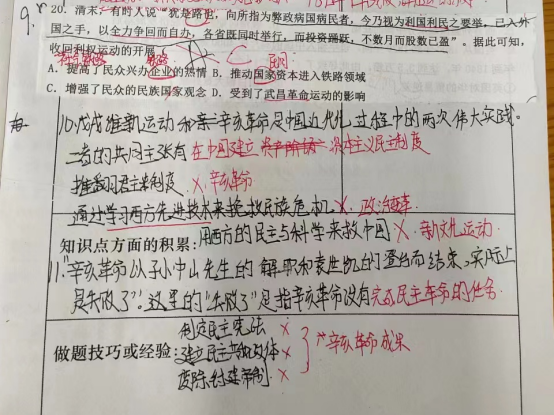 9.
20. 清末，有时人说“犹是路也，向所指为弊政病国病民者，今乃视为利国利民之要举，已入外
国之手，以全力争回而自办，各省既同时举行，而投资踊跃，不数月而股数已盈”。据此可知，
收回利权运动的开展（ C
民间
A. 提高了民众兴办企业的热情 B. 推动国家资本进入铁路领域
C. 增强了民众的民族国家观念 D. 受到了武昌革命运动的影响
10.戊戌维新运动和辛亥革命是中国近代化过程中的两次伟大实践。
二者的共同主张有 在中国建立 资本主义民主制度
推翻君主制度. ×. 辛亥革命
通过学习西方先进技术来挽救民族危机 ×. 政治制度.
知识点方面的积累: 用西方的民主与科学来救中国 ×. 新文化运动.
11."辛亥革命以孙中山先生的解职和袁世凯的登台而结束,实际上
是失败了". 这里的"失败了"是指辛亥革命没有 完成民主革命的任务.
制定民主宪法 ×
做题技巧或经验: 建立民主共和政体 × 辛亥革命成果
废除封建帝制. ×